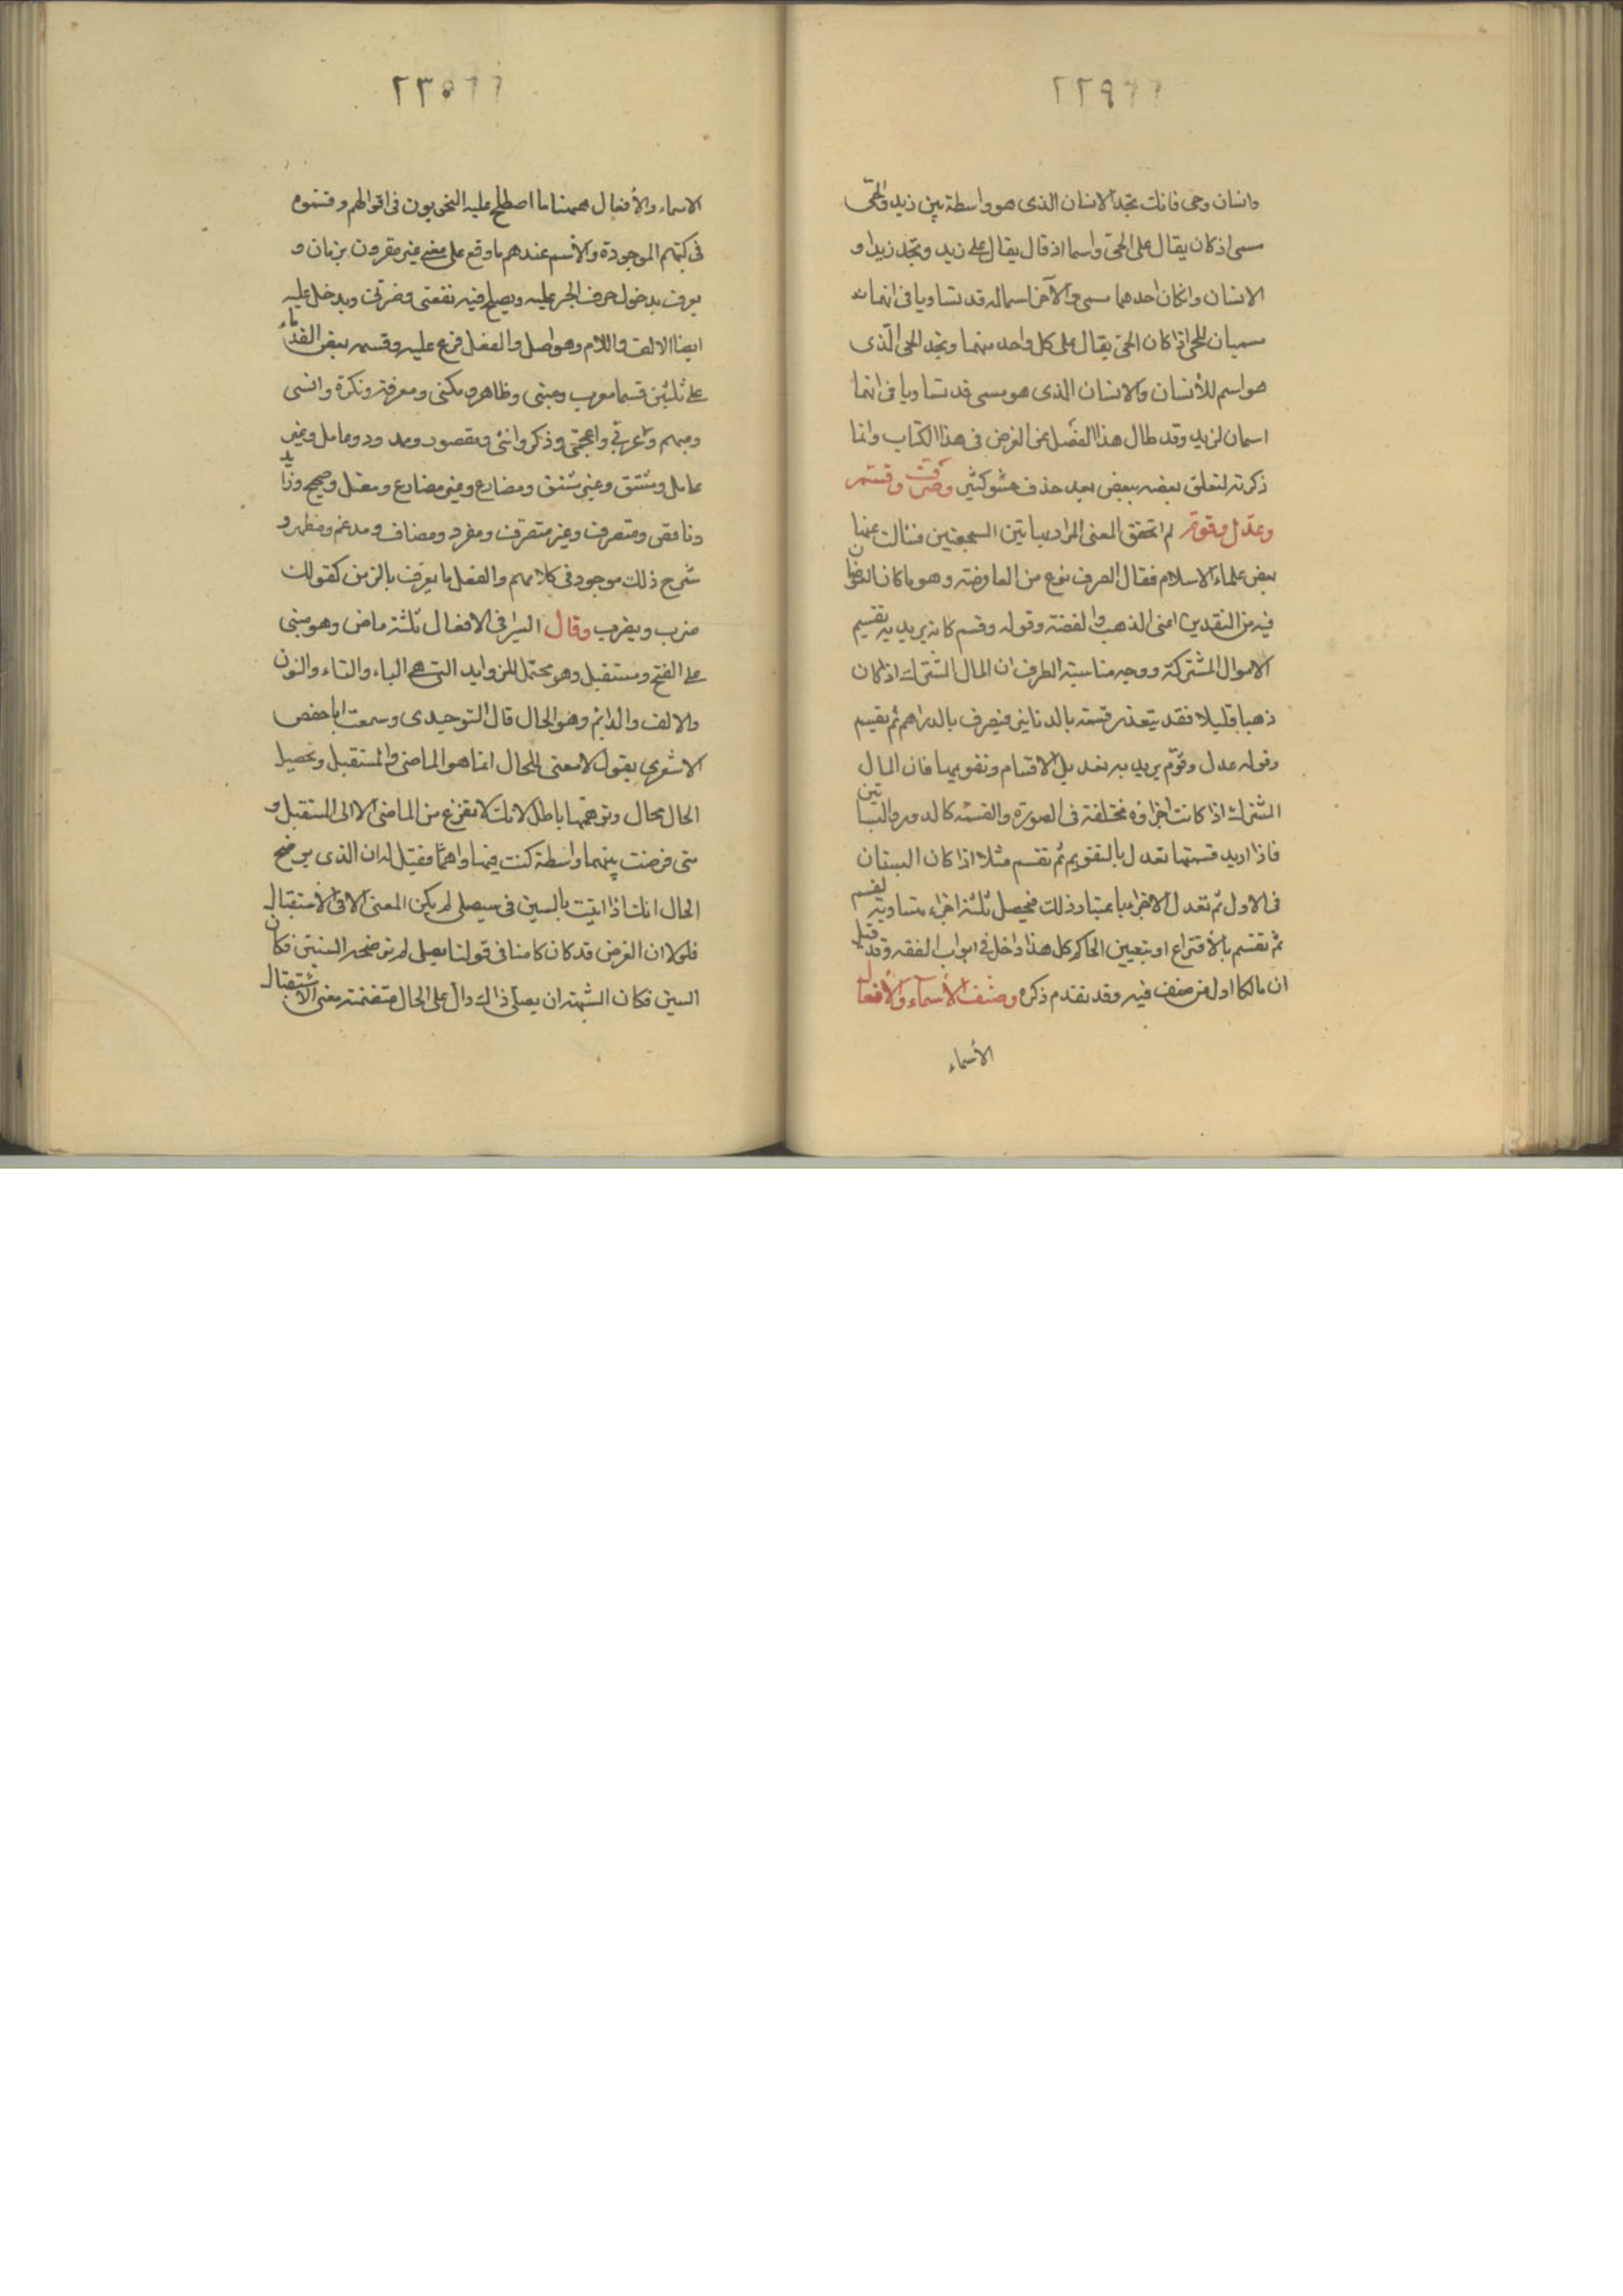 ٢٢٩
وانسان وحى فانك تجد الانسان الذى هو واسطة بين زيد والحى
مسمى اذ كان يقال على الحى واسما اذ قال يقال على زيد وتجد زيدا و
الانسان وان كان احدهما مسمى والآخر اسما له قد تساويا فى انهما
مسميان للحى اذا كان الحى يقال على كل واحد منهما وتجد الحى الذى
هو اسم للأنسان والانسان الذى هو مسمى قد تساويا فى انهما
اسمان لزيد وقد طال هذا الفصل عن الغرض فى هذا الكتاب وانما
ذكرته لتعلق بعضه ببعض بعد حذف حشو كثير وصرفت وقسم
وعدل وقوم لم اتحقق المعنى المراد بهاتين السجعتين فسالت عنهما
بعض علماء الاسلام فقال الصرف نوع من المعاوضة وهو ما كان العوضان
فيه من النقدين اعنى الذهب والفضة وقوله وقسم كانه يريد به تقسيم
الاموال المشتركة ووجه مناسبة الطرف ان المال المشترك اذا كان
ذهبا قليلا فقد يتعذر قسمته بالدنانير فيصرف بالدراهم ثم يقسم
وقوله عدل وقوّم يريد به تعديل الاقسام وتقويمها فان المال
المشترك اذا كانت اجزاؤه مختلفة فى الصورة والقسمة كالدور والبساتين
فاذا اريد قسمتها تعدل بالتقويم ثم تقسم مثلا اذا كان البستان
فى الاول ثم تعدل الاجزاء باعتبار ذلك فيحصل ثلثة اجزاء متساوية لقسم
ثم تقسم بالأقتراع او بتعيين الحاكم كل هذا داخل فى ابواب الفقه وقد قيل
ان مالكا اول من صنف فيه وقد تقدم ذكره وصنف الأسماء والأفعال
الأسماء
٢٣٠
الاسماء والأفعال ههنا ما اصطلح عليه النحويون فى اقوالهم وقسموه
فى كتبهم الموجودة والاسم عندهم ما وقع على معنى غير مقرون بزمان و
يعرف بدخول حرف الجر عليه ويصلح فيه نفعنى وضرنى ويدخل عليه
ايضا الالف واللام وهو اصل والفعل فرع عليه وقسمه بعض القدماء
على ثلثين قسما معرب ومبنى وظاهر ومكنى ومعرفة ونكرة وانسى
ومبهم وعربى واعجمى وذكر وانثى ومقصور وممدود وعامل وغير
عامل ومشتق وغير مشتق ومضارع وغير مضارع ومعتل وصحيح وزائد
وناقص ومتصرف وغير متصرف ومفرد ومضاف ومدغم ومظهر و
شرح ذلك موجود فى كلامهم والفعل ما يعرف بالزمن كقولك
ضرب ويضرب وقال السيرافى الافعال ثلثة ماض وهو مبنى
على الفتح ومستقبل وهو محتمل للزوايد التى هى الياء والتاء والنون
والالف والدايم وهو الحال قال التوحيدى وسمعت ابا حفص
الاشعرى يقول لا معنى للحال انما هو الماضى والمستقبل وتحصيل
الحال محال وتوهمها باطل لانك لا تفزع من الماضى الا الى المستقبل و
متى فرضت بينهما واسطة كنت فيها واهما فقيل له ان الذى يوضح
الحال انك اذا اتيت بالسين فى سيصلى لم يكن المعنى الا فى الأستقبال
فلولا ان الغرض قد كان كامنا فى قولنا يصلى لم توضحه السنين فكان
السين فكان الشبهة ان يصلى ذاك دال على الحال متضمنة معنى الاستقبال